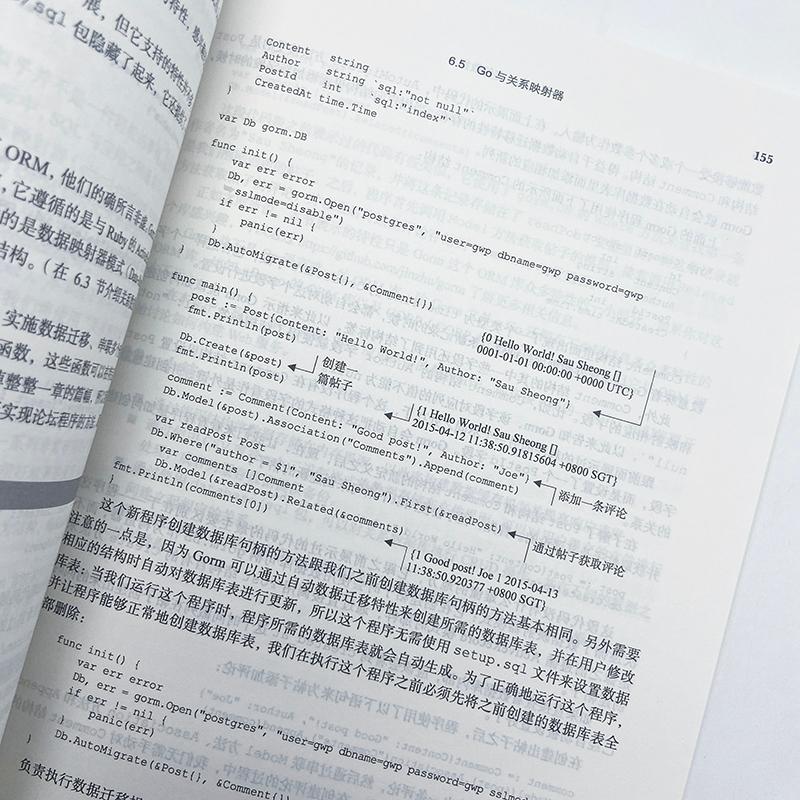 特性，是
展，但它支持的特性
/sql 包隐藏了起来，它
ORM，他们的确所言非虚。Gorm
，它遵循的是与 Ruby 的 A
的是数据映射器模式（Da
结构。（在 6.3 节介绍关系
实施数据迁移，
函数，这些函数可以
整整一章的篇幅，
实现论坛程序的方法
6.5 Go 与关系映射器
155
Content string
Author string `sql:"not null"`
PostId int `sql:"index"`
CreatedAt time.Time
}
var Db gorm.DB
func init() {
var err error
Db, err = gorm.Open("postgres", "user=gwp dbname=gwp password=gwp
sslmode=disable")
if err != nil {
panic(err)
}
Db.AutoMigrate(&Post{}, &Comment{})
}
func main() {
post := Post{Content: "Hello World!", Author: "Sau Sheong"}
fmt.Println(post)
{0 Hello World! Sau Sheong []
0001-01-01 00:00:00 +0000 UTC}
Db.Create(&post)
fmt.Println(post)
创建一
篇帖子
{1 Hello World! Sau Sheong []
2015-04-12 11:38:50.91815604 +0800 SGT}
comment := Comment{Content: "Good post!", Author: "Joe"}
Db.Model(&post).Association("Comments").Append(comment)
添加一条评论
var readPost Post
Db.Where("author = $1", "Sau Sheong").First(&readPost)
var comments []Comment
Db.Model(&readPost).Related(&comments)
通过帖子获取评论
fmt.Println(comments[0])
}
{1 Good post! Joe 1 2015-04-13
11:38:50.920377 +0800 SGT}
这个新程序创建数据库句柄的方法跟我们之前创建数据库句柄的方法基本相同。另外需要
注意的一点是，因为 Gorm 可以通过自动数据迁移特性来创建所需的数据库表，并在用户修改
相应的结构时自动对数据库表进行更新，所以这个程序无需使用 setup.sql 文件来设置数据
库表：当我们运行这个程序时，程序所需的数据库表就会自动生成。为了正确地运行这个程序，
并让程序能够正常地创建数据库表，我们在执行这个程序之前必须先将之前创建的数据库表全
部删除：
func init() {
var err error
Db, err = gorm.Open("postgres", "user=gwp dbname=gwp password=gwp sslmode
if err != nil {
panic(err)
}
Db.AutoMigrate(&Post{}, &Comment{})
}
负责执行数据迁移